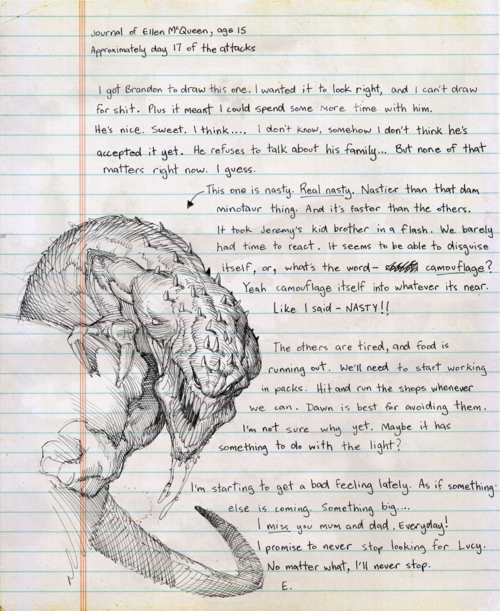 Journal of Ellen McQueen, age 15
Approximately day 17 of the attacks
I got Brandon to draw this one. I wanted it to look right, and I can't draw
for shit. Plus it meant I could spend some more time with him.
He's nice. Sweet. I think.... I don't know, somehow I don't think he's
accepted it yet. He refuses to talk about his family... But none of that
matters right now. I guess.
This one is nasty. Real nasty. Nastier than that dam
minotaur thing. And it's faster than the others.
It took Jeremy's kid brother in a flash. We barely
had time to react. It seems to be able to disguise
itself, or, what's the word - camouflage?
Yeah camouflage itself into whatever its near.
Like I said - NASTY!!
The others are tired, and food is
running out. We'll need to start working
in packs. Hit and run the shops whenever
we can. Dawn is best for avoiding them.
I'm not sure why yet. Maybe it has
something to do with the light?
I'm starting to get a bad feeling lately. As if something
else is coming. Something big....
I miss you mum and dad. Everyday!
I promise to never stop looking for Lucy.
No matter what, I'll never stop.
E.